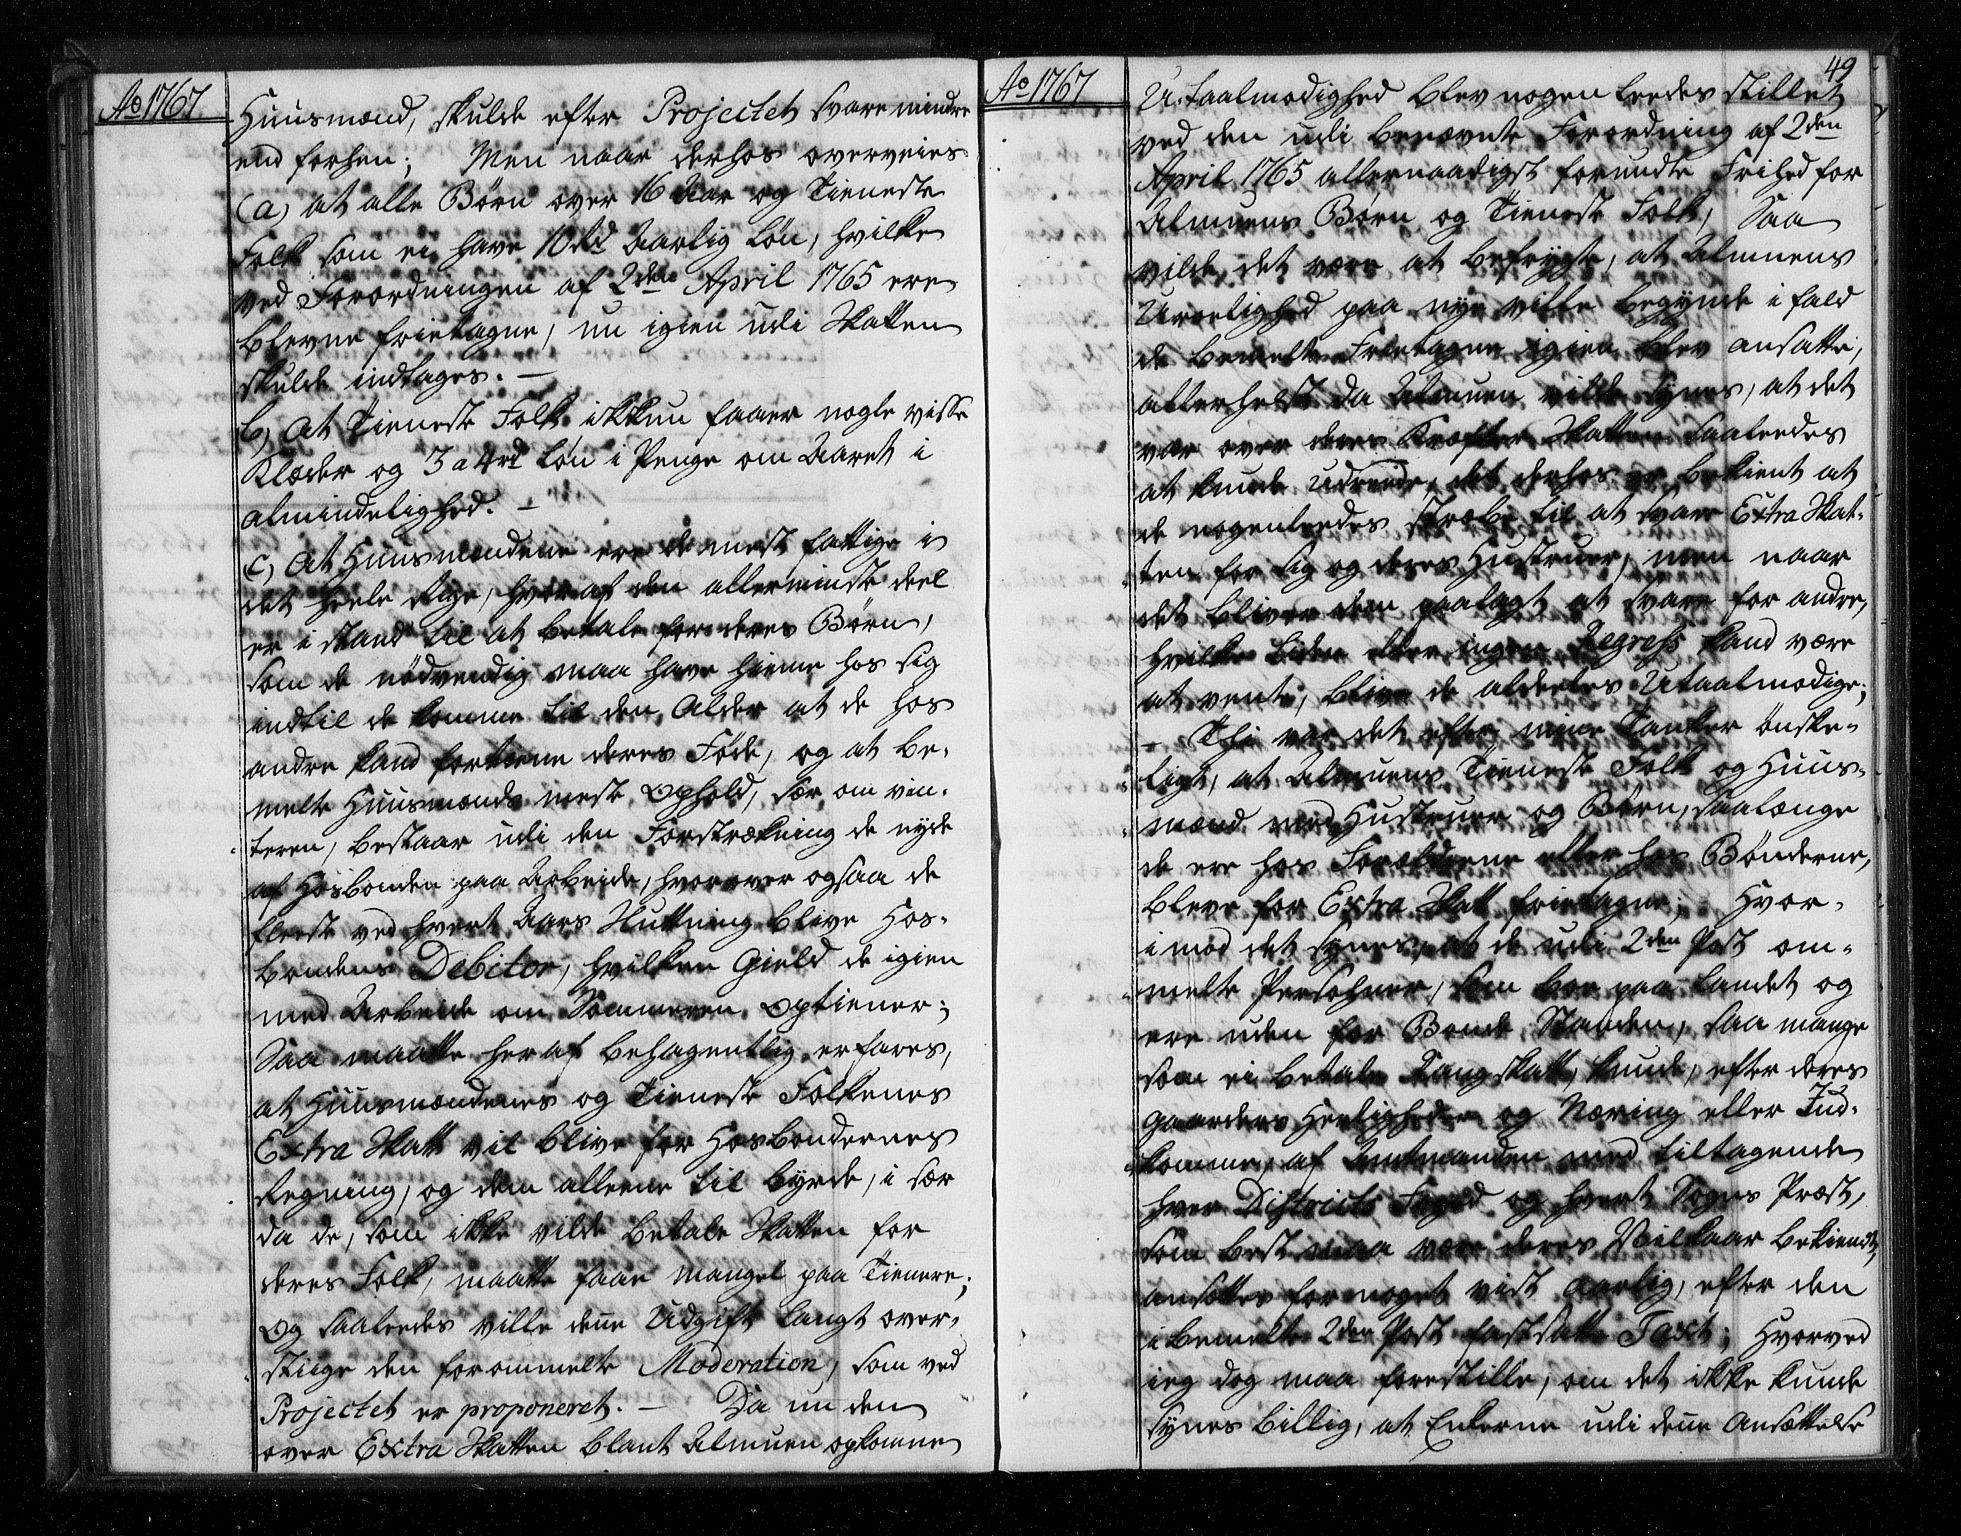 Ao 1767.
Huusmænd, skulde efter Projectet svare mindre
end forhen; Men naar derhos overveies
(a) at alle Børn over 16 Aar og Tieneste
Folk som ei have 10 Rd Aarlig Løn, hvilke
ved Forordningen af 2den April 1765 ere
blevne frietagne, nu igien udi Skatten
skulde indtages. —
b) At Tieneste Folk ikkun faaer nogle visse
Klæder og 3 a 4 rd Løn i Penge om Aaret i
almindelighed. —
c) At Huusmændene ere de mest fattige i
det heele Rige, hvoraf den allermindste deel
er i stand til at betale for deres Børn,
som de nødvendig maa have hieme hos sig
indtil de komme til den Alder at de hos
andre kand fortiene deres Føde, og at be-
melte Huusmænds meste Ophold, sær om vin-
teren, bestaar udi den Forstrækning de nyde
af Hosbonden paa Arbeide, hvorover ogsaa de
fleeste ved hvert Aars Sluttning blive Hos-
bondens Debitor, hvilken Gield de igien
med Arbeide om Sommeren optiener;
Saa maatte heraf behagentlig erfares,
at Huusmændenes og Tieneste Folkenes
Extra Skatt vil blive for Hosbondernes
Regning, og dem alleene til byrde, i sær
da de, som ikke vilde betale Skatten for
deres Folk, maatte faae mangel paa Tienere;
Og saaleedes ville denne Udgift langt over-
stiige den forommelte Moderation, som ved
Projectet er proponeret. — Da nu den
over Extra Skatten blant Almuen opkomne
Ao 1767
49
Utaalmodighed blev nogenleedes stillet
ved den udi benævnte Forordning af 2den
April 1765 allernaadigst forundte Frihed for
Almuens Børn og Tieneste Folk, Saa
vilde det være at befrygte, at Almuens
Uroelighed paa nye ville begynde i fald
de bemelte Frietagne igien blev ansatte,
allerhelst da Almuen vilde synes, at det
var over deres Kræfter Skatten saaleedes
at kunde udreede, det derhos er bekient at
de nogenleedes stræbe til at svare Extra Skat-
ten for sig og deres Hustruer, men naar
det bliver dem paalagt at svare for andre,
hvilke liden eller ingen Regress kand være
at vente, blive de aldeeles Utaalmodige;
— Thi var det efter mine Tanker ønske-
ligt, at Almuens Tieneste Folk og Huus-
mænd med Hustruer og Børn, saalænge
de ere hos Forældrene eller hos Bønderne,
bleve for Extra Skatt frietagne; Hvor-
imod det synes, at de udi 2den Post om-
melte Persohner, som boe paa Landet og
ere uden for Bonde Standen, saa mange
som ei betale Rangskatt, kunde, efter deres
Gaarders Herligheder og Næring eller Ind-
komme, af Amtmanden med tiltagende
hver Districts Foged og hvert Sogns Præst,
som best maa være deres Vilkaar bekiendt,
ansættes for noget vist aarlig, efter den
i bemelte 2den Post fastsatte Taxt; Hvorved
ieg dog maa forestille, om det ikke kunde
synes billig, at Enkerne udi denne Ansættelse